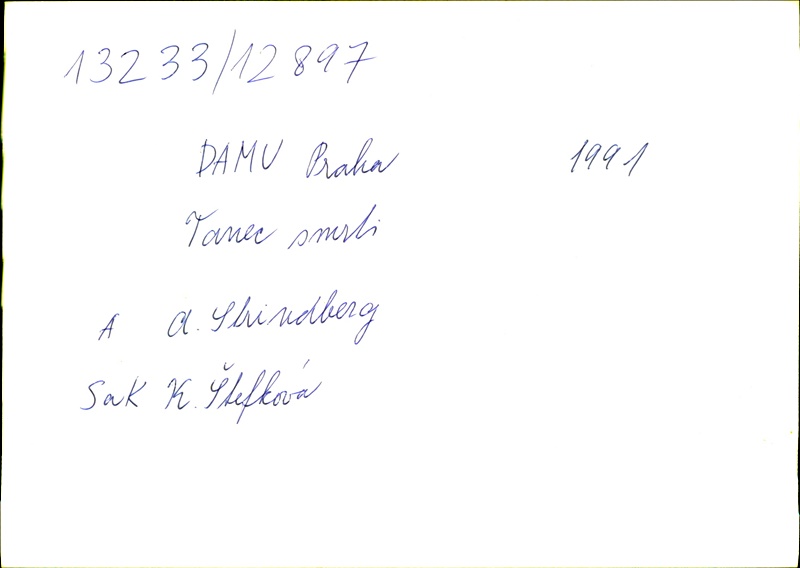 13233/12897
DAMU Praha 1991
Tanec smrti
A A. Strindberg
SaK K. Štefková